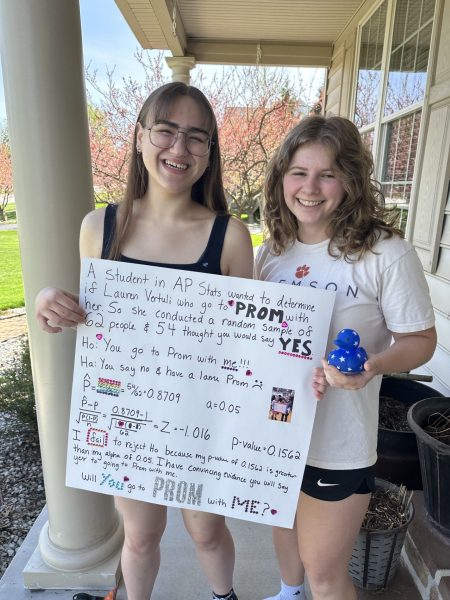 CLEMSON
A Student in AP Stats wanted to determine
if Lauren Vertuli who go to PROM with
her. So she conducted a random sample of
62 people & 54 thought you would say YES.
Ho: You go to Prom with me!!!
Ha: You say no & have a lame Prom
p̂ = 54/62 = 0.8709 a=0.05
p̂-p / √(p(1-p)/n) = 0.8709-1 = Z = -1.016
p-value = 0.1562
I fail to reject Ho because my p-value of 0.1562 is greater
than my alpha of 0.05. I have convincing evidence you will say
yes to going to Prom with me.
Will You go to PROM with ME?